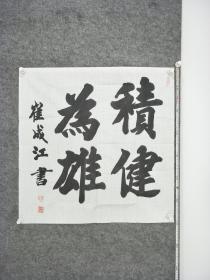 積健
為雄
崔成江書